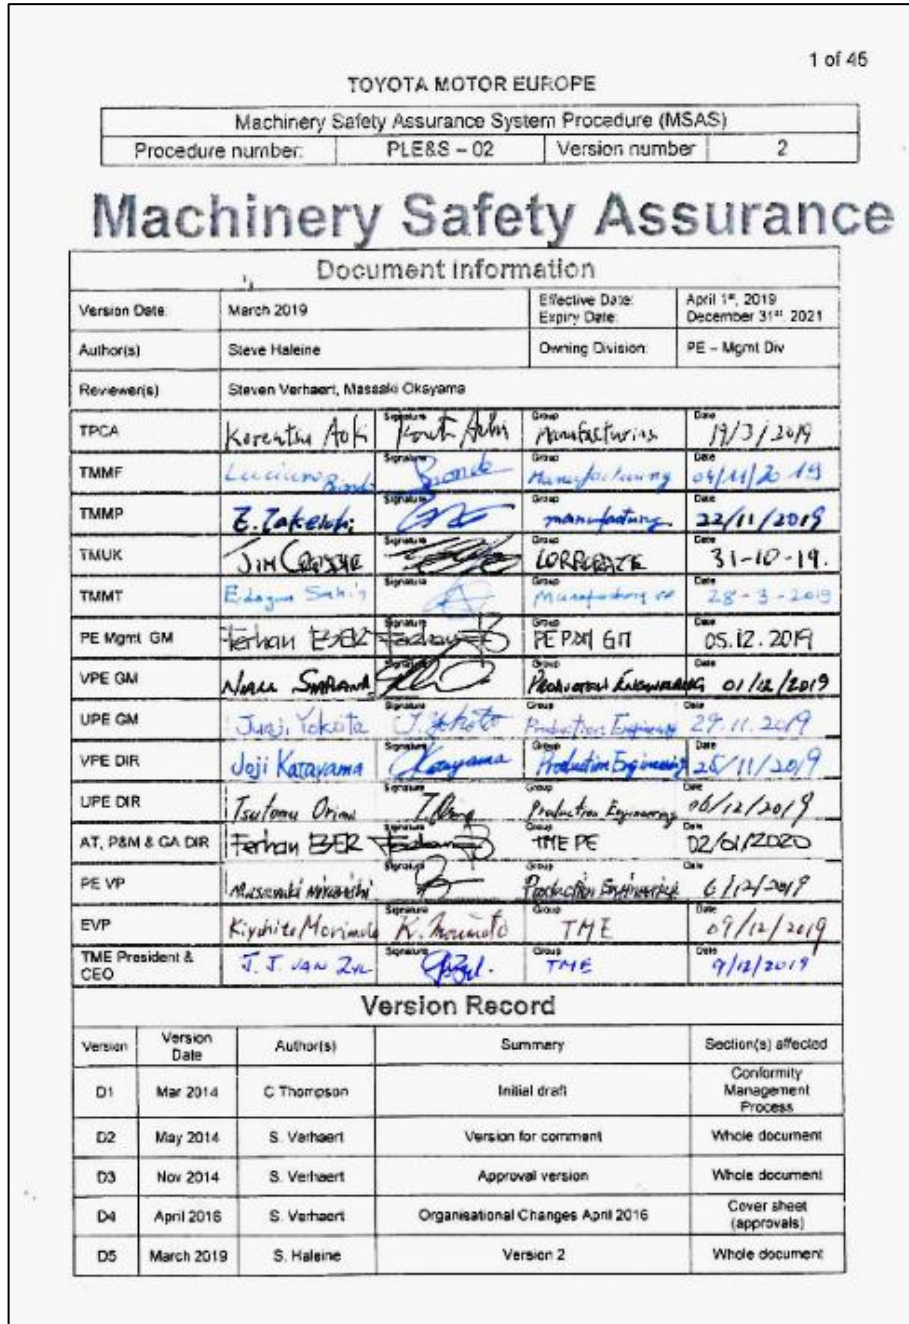 1 of 45
TOYOTA MOTOR EUROPE
Machinery Safety Assurance System Procedure (MSAS)
Procedure number: PLE&S – 02 Version number 2
Machinery Safety Assurance
Document Information
Version Date: March 2019 Effective Date: April 1st, 2019
Expiry Date: December 31st, 2021
Author(s) Steve Haleine Owning Division: PE – Mgmt Div
Reviewer(s) Steven Verhaert, Masaaki Okayama
TPCA Signature Aoki Group Manufacturing Date 19/3/2019
TMMF Luciano Biondo Signature Biondo Group Manufacturing Date 04/11/2019
TMMP Signature Group manufacturing Date 22/11/2019
TMUK Jim Signature Group CORPORATE Date 31-10-19.
TMMT Signature Group Date 28-3-2019
PE Mgmt GM Ferhan Signature Group PE Date 05.12.2019
VPE GM Signature Group PRODUCTION ENGINEERING Date 01/12/2019
UPE GM Junji Yokota Signature J. Yokota Group Production Engineering Date 29.11.2019
VPE DIR Joji Katayama Signature Katayama Group Production Engineering Date 25/11/2019
UPE DIR Tsutomu Signature Group Production Engineering Date 06/12/2019
AT, P&M & GA DIR Ferhan Signature Group TME PE Date 02/01/2020
PE VP Signature Group Production Engineering Date 6/12/2019
EVP Morimoto Signature K. Morimoto Group TME Date 09/12/2019
TME President & CEO J. J. VAN ZYL Signature Group TME Date 9/12/2019
Version Record
Version Version Date Author(s) Summary Section(s) affected
D1 Mar 2014 C Thompson Initial draft Conformity Management Process
D2 May 2014 S. Verhaert Version for comment Whole document
D3 Nov 2014 S. Verhaert Approval version Whole document
D4 April 2016 S. Verhaert Organisational Changes April 2016 Cover sheet (approvals)
D5 March 2019 S. Haleine Version 2 Whole document